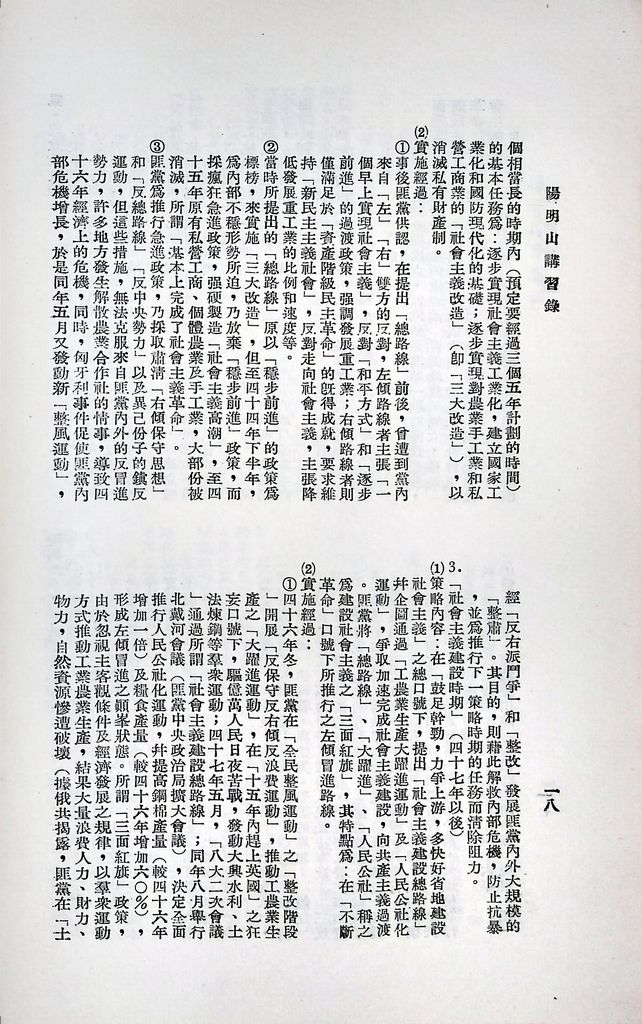 陽明山講習錄
一八
個相當長的時期內（預定要經過三個五年計劃的時間）
的基本任務爲：逐步實現社會主義工業化，建立國家工
業化和國防現代化的基礎；逐步實現對農業手工業和私
營工商業的「社會主義改造」（卽「三大改造」），以
消滅私有財產制。
(2)實施經過：
①事後匪黨供認，在提出「總路線」前後，曾遭到黨內
來自「左」、「右」雙方的反對，左傾路線者主張「一
個早上實現社會主義」，反對「和平方式」和「逐步
前進」的過渡政策，强調發展重工業；右傾路線者則
僅滿足於「資產階級民主革命」的旣得成就，要求維
持「新民主主義社會」，反對走向社會主義，主張降
低發展重工業的比例和速度等。
②當時所提出的「總路線」原以「穩步前進」的政策爲
標榜，來實施「三大改造」，但至四十四年下半年，
爲內部不穩形勢所迫，乃放棄「穩步前進」政策，而
採瘋狂急進政策，强硬製造「社會主義高潮」，至四
十五年原有私營工商、個體農業及手工業，大部份被
消滅，所謂「基本上完成了社會主義革命」。
③匪黨爲推行急進政策，乃採取肅淸「右傾保守思想」
和「反總路線」「反中央勢力」以及異己份子的鎮反
運動，但這些措施，無法克服來自匪黨內外的反冒進
勢力，許多地方發生解散農業合作社的情事，導致四
十六年經濟上的危機，同時，匈牙利事件促使匪黨內
部危機增長，於是同年五月又發動新「整風運動」，
經「反右派鬥爭」和「整改」發展匪黨內外大規模的
「整肅」。其目的，則藉此解救內部危機，防止抗暴
，並爲推行下一策略時期的任務而淸除阻力。
3.「社會主義建設時期」（四十七年以後）
(1)策略內容：在「鼓足幹勁，力爭上游，多快好省地建設
社會主義」之總口號下，提出「社會主義建設總路線」
幷企圖通過「工農業生產大躍進運動」及「人民公社化
運動」，爭取加速完成社會主義建設，向共產主義過渡
。匪黨將「總路線」、「大躍進」、「人民公社」稱之
爲建設社會主義之「三面紅旗」，其特點爲：在「不斷
革命」口號下所推行之左傾冒進路線。
(2)實施經過：
①四十六年冬，匪黨在「全民整風運動」之「整改階段
」開展「反保守反右傾反浪費運動」，推動工農業生
產之「大躍進運動」，在「十五年內趕上英國」之狂
妄口號下，驅億萬人民日夜苦戰，發動大興水利、土
法煉鋼等羣衆運動；四十七年五月，「八大二次會議
」通過所謂「社會主義建設總路線」；同年八月舉行
北戴河會議（匪黨中央政治局擴大會議），決定全面
推行人民公社化運動，幷提高鋼棉產量（較四十六年
增加一倍）及糧食產量（較四十六年增加六〇％），
形成左傾冒進之巔峯狀態。所謂「三面紅旗」政策，
由於忽視主客觀條件及經濟發展之規律，以羣衆運動
方式推動工業農業生產，結果大量浪費人力、財力、
物力，自然資源慘遭破壞（據俄共揭露，匪黨在「土